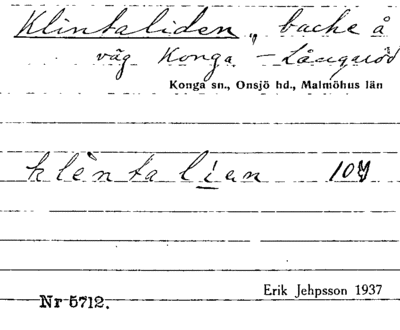 Klintaliden, backe å
väg Konga - Långaröd
Konga sn., Onsjö hd., Malmöhus län
klèntalían 104
Erik Jehpsson 1937
Nr 5712.